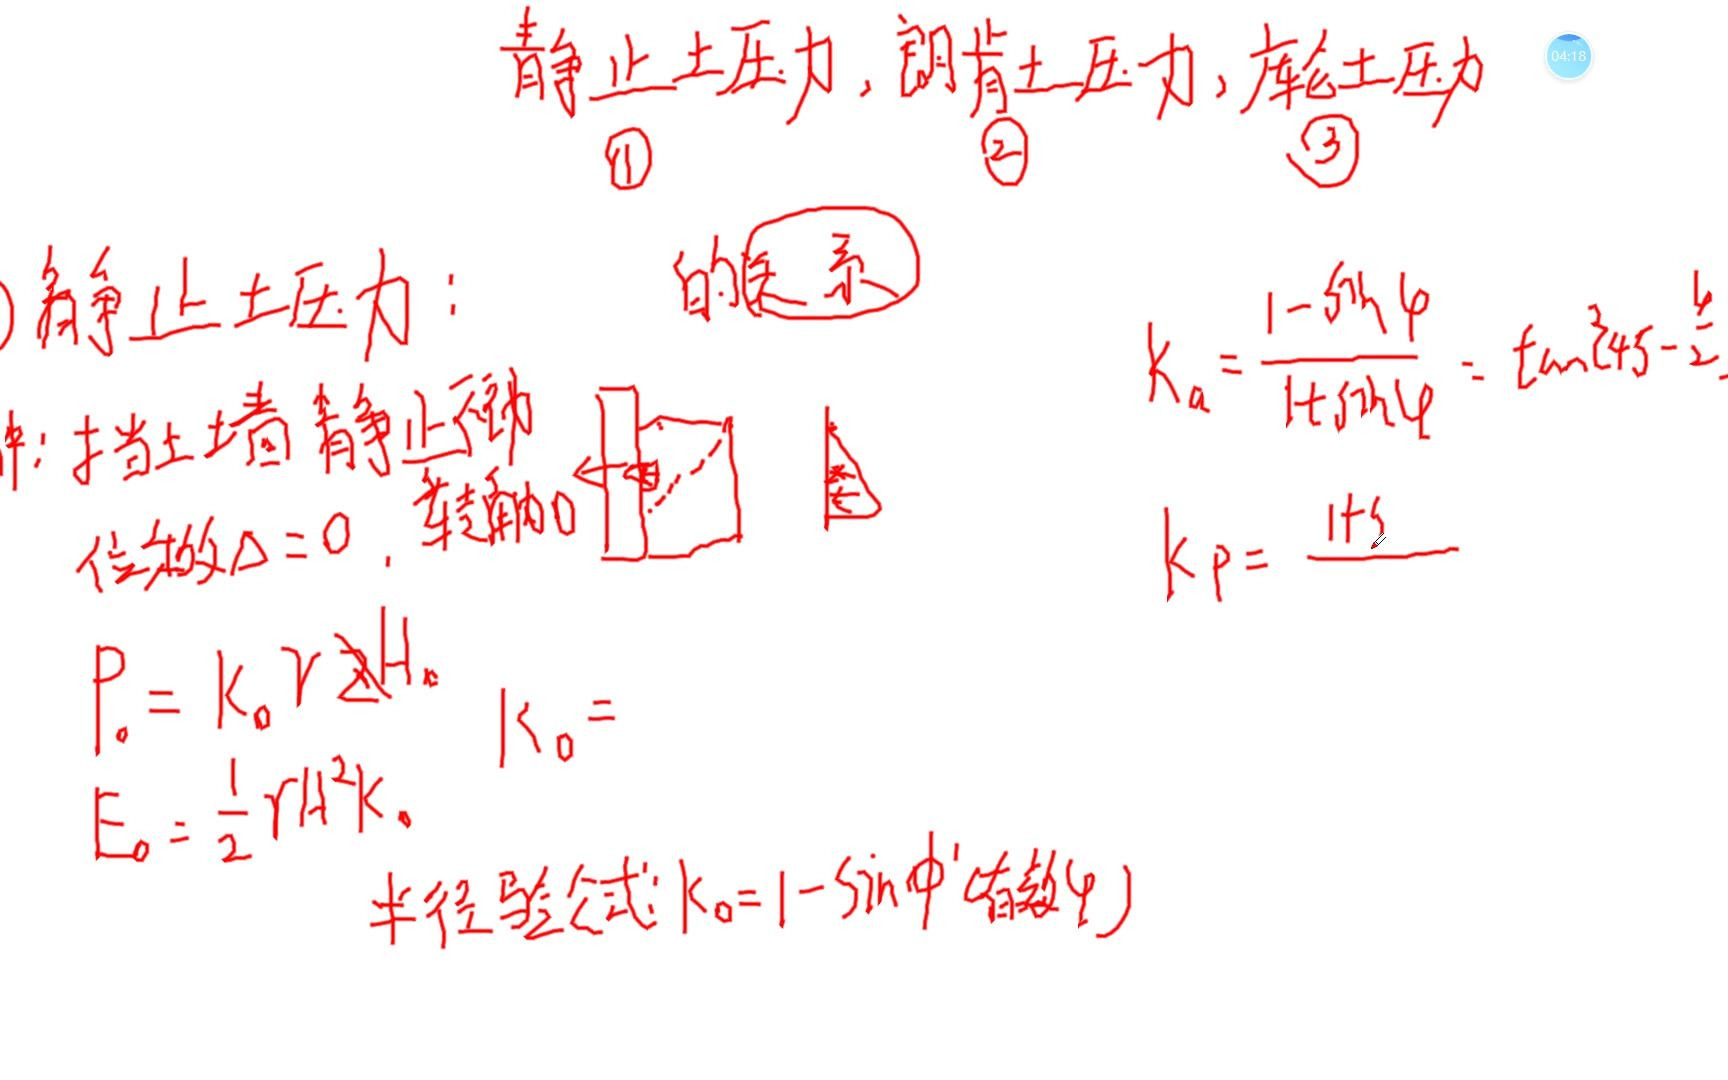 静止土压力,朗肯土压力,库伦土压力
① ② ③
的关系
)静止土压力:
件:挡土墙静止不动
位移Δ=0,转角为0
P₀=K₀γzH.
K₀=
E₀=½γH²K₀
半经验公式:K₀=1-sinφ'(有效φ)
Ka=(1-sinφ)/(1+sinφ)=tan²(45-φ/2
Kp=1+s
04:18